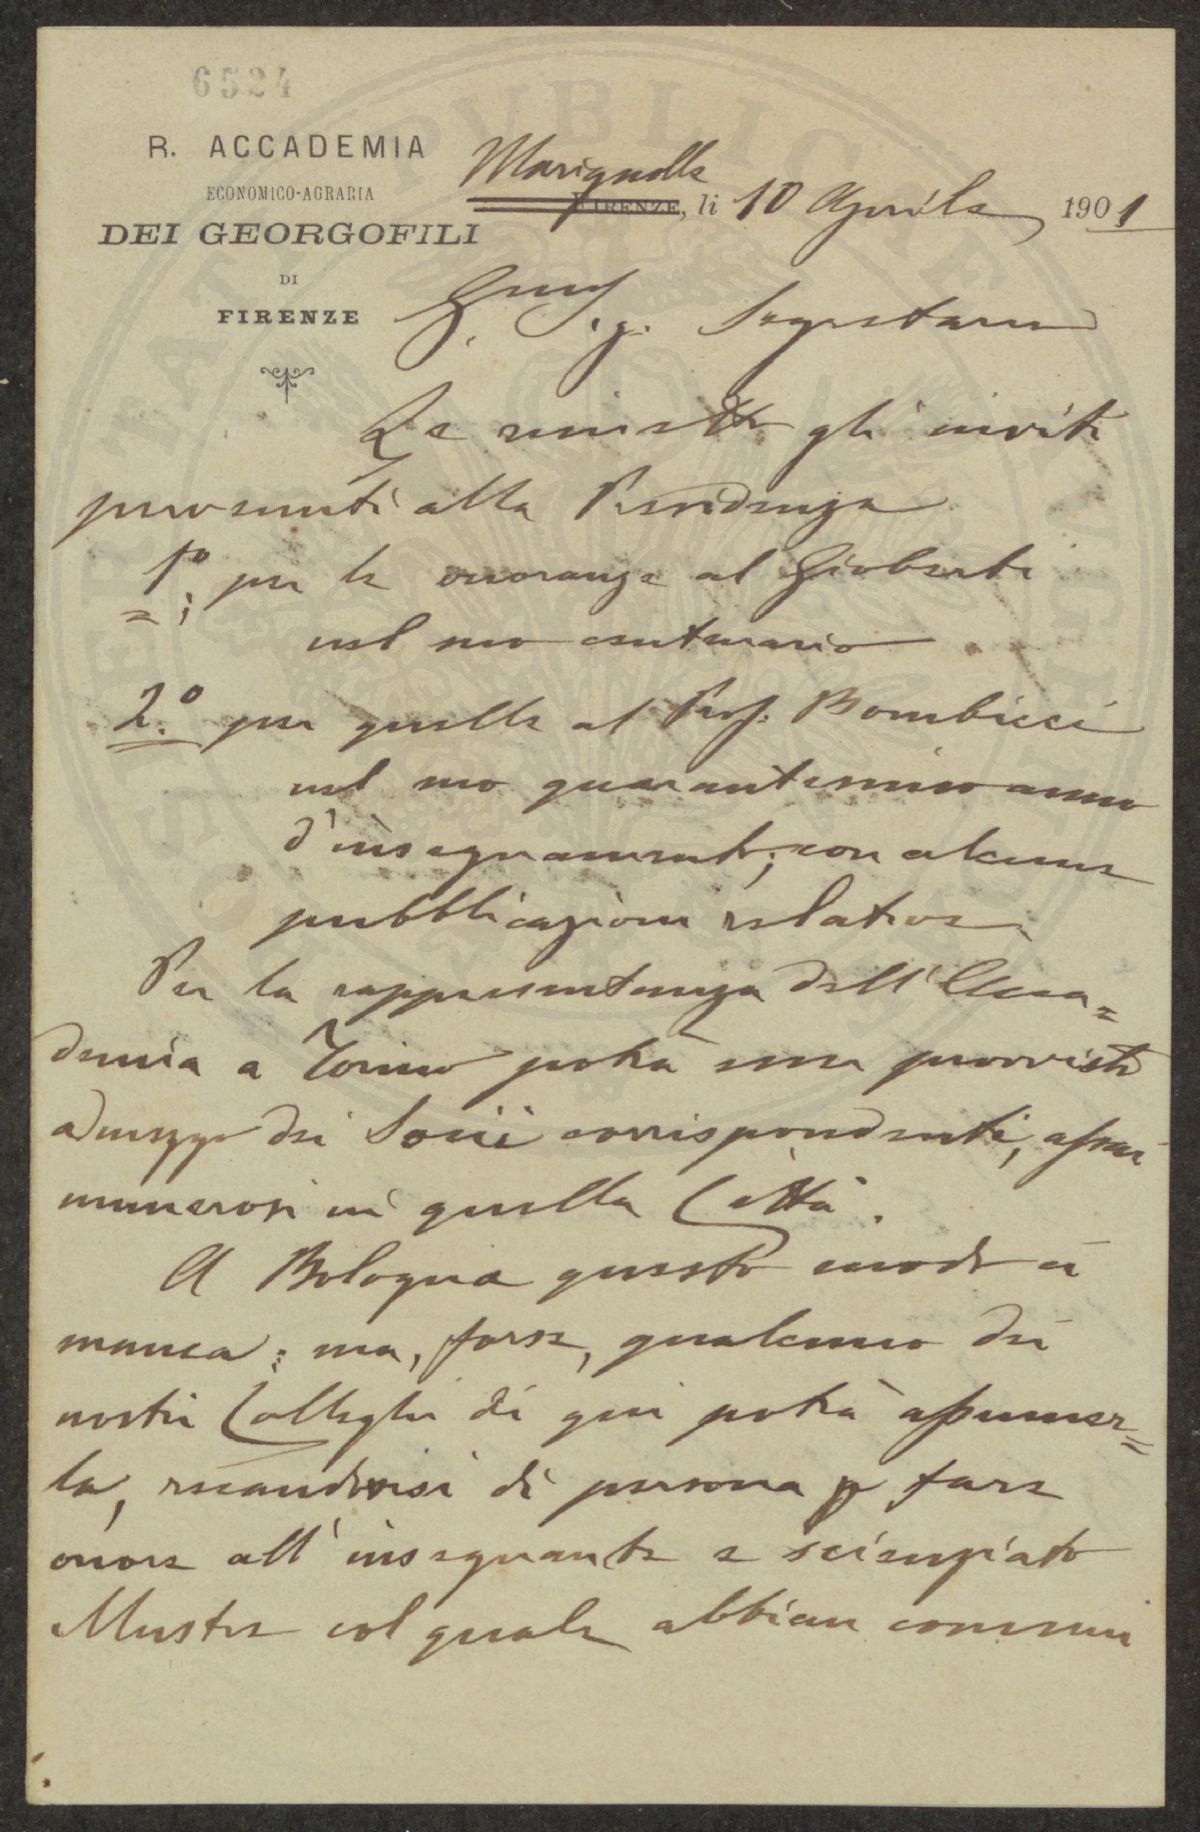 6524
R. ACCADEMIA
ECONOMICO-AGRARIA
DEI GEORGOFILI
DI
FIRENZE
Marignolle
FIRENZE, li 10 Aprile 1901
Sig. Segretario
Le rimetto gli inviti
pervenuti alla Presidenza
1º; per le onoranze al Gioberti
nel suo centenario
2.º per quelle al Prof. Bombicci
nel suo quarantesimo anno
d'insegnamento; con alcune
pubblicazioni relative.
Per la rappresentanza dell'Acca=
demia a Torino potrà esser provvisto
a mezzo dei Socii corrispondenti, assai
numerosi in quella Città.
A Bologna questo modo ci
manca; ma, forse, qualcuno dei
nostri Colleghi di qui potrà assumer=
la, recandovisi di persona p fare
onore all'insegnante e scienziato
illustre col quale abbiam comuni